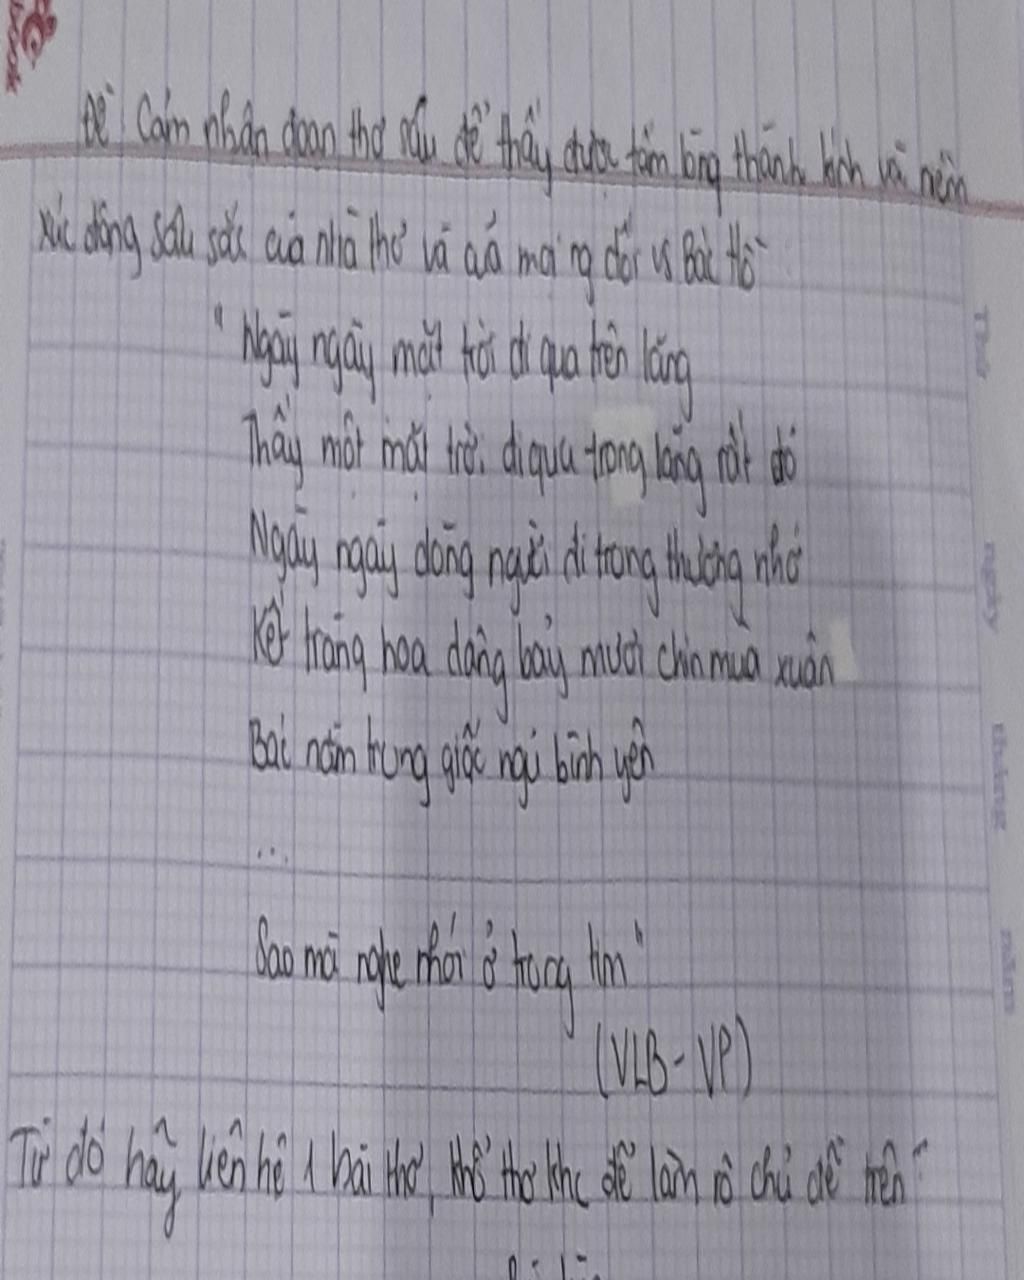 Đề: Cảm nhận đoạn thơ sau để thấy được tấm lòng thành kính và niềm
xúc động sâu sắc của nhà thơ và cả mọi ng đối vs Bác Hồ
"Ngày ngày mặt trời đi qua trên lăng
Thấy một mặt trời đi qua trong lăng rất đỏ
Ngày ngày dòng người đi trong thương nhớ
Kết tràng hoa dâng bảy mươi chín mùa xuân
Bác nằm trong giấc ngủ bình yên
...
Sao mà nghe nhói ở trong tim"
(VLB - VP)
Từ đó hãy liên hệ 1 bài thơ, khổ thơ khc để làm rõ chủ đề trên